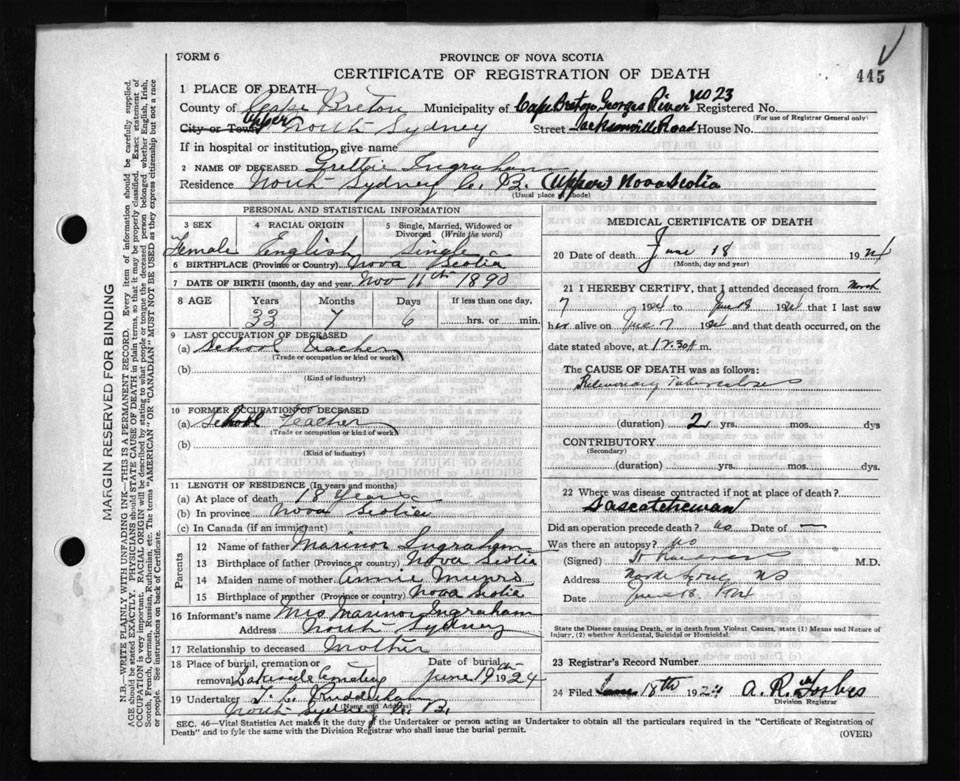 FORM 6
PROVINCE OF NOVA SCOTIA
CERTIFICATE OF REGISTRATION OF DEATH
445
1 PLACE OF DEATH—
County of Cape Breton Municipality of Cape Breton, Georges River No 23 Registered No.
(For use of Registrar General only)
City or Town Upper North Sydney Street Jacksonville Road House No.
If in hospital or institution, give name
2 NAME OF DECEASED Ingraham
Residence North Sydney C. B. (Upper) Nova Scotia
(Usual place of abode)
PERSONAL AND STATISTICAL INFORMATION
3 SEX 4 RACIAL ORIGIN 5 Single, Married, Widowed or Divorced (Write the word)
Female English Single
6 BIRTHPLACE (Province or Country) Nova Scotia
7 DATE OF BIRTH (month, day and year) Nov 11th 1890
8 AGE Years Months Days If less than one day,
33 7 6 hrs. or min.
9 LAST OCCUPATION OF DECEASED
(a) School Teacher
(Trade or occupation or kind of work)
(b)
(Kind of industry)
10 FORMER OCCUPATION OF DECEASED
(a) School Teacher
(Trade or occupation or kind of work)
(b)
(Kind of industry)
11 LENGTH OF RESIDENCE (In years and months)
(a) At place of death 18 Years
(b) In province Nova Scotia
(c) In Canada (if an immigrant)
Parents
12 Name of father Marinor Ingraham
13 Birthplace of father (Province or country) Nova Scotia
14 Maiden name of mother Annie Munro
15 Birthplace of mother (Province or country) Nova Scotia
16 Informant's name Mrs Marinor Ingraham
Address North Sydney
17 Relationship to deceased Mother
18 Place of burial, cremation or removal Lakeside Cemetery Date of burial June 19th 1924
19 Undertaker
(Name and Address)
North Sydney C. B.
MEDICAL CERTIFICATE OF DEATH
20 Date of death June 18 1924
(Month, day and year)
21 I HEREBY CERTIFY, that I attended deceased from March
7 1924 to June 8 1924 that I last saw
her alive on June 7 1924 and that death occurred, on the
date stated above, at 12.30 m.
The CAUSE OF DEATH was as follows:
Pulmonary Tuberculosis
(duration) 2 yrs. mos. dys
CONTRIBUTORY
(Secondary)
(duration) yrs. mos. dys.
22 Where was disease contracted if not at place of death?
Sascatchewan
Did an operation precede death? No Date of —
Was there an autopsy? No
(Signed) M.D.
Address NS
Date June 18. 1924
State the Disease causing Death, or in death from Violent Causes, state (1) Means and Nature of
Injury, (2) whether Accidental, Suicidal or Homicidal.
23 Registrar's Record Number
24 Filed 18th 1924 A. R. Forbes
Division Registrar
SEC. 46—Vital Statistics Act make it the duty of the Undertaker or person acting as Undertaker to obtain all the particulars required in the "Certificate of Registration of
Death" and to fyle the same with the Division Registrar who shall issue the burial permit.
(OVER)
MARGIN RESERVED FOR BINDING
N.B.—WRITE PLAINLY WITH UNFADING INK—THIS IS A PERMANENT RECORD. Every item of information should be carefully supplied.
AGE should be stated EXACTLY. PHYSICIANS should STATE CAUSE OF DEATH in plain terms, so that it may be properly classified. Exact statement of
OCCUPATION is very important. RACIAL ORIGIN will be described by stating to what people or tongue the deceased person belonged whether English, Irish,
Scotch, French, German, Russian, Ruthenian, etc. The terms "AMERICAN" OR "CANADIAN" MUST NOT BE USED as they express citizenship but not a race
or people. See instructions on back of Certificate.